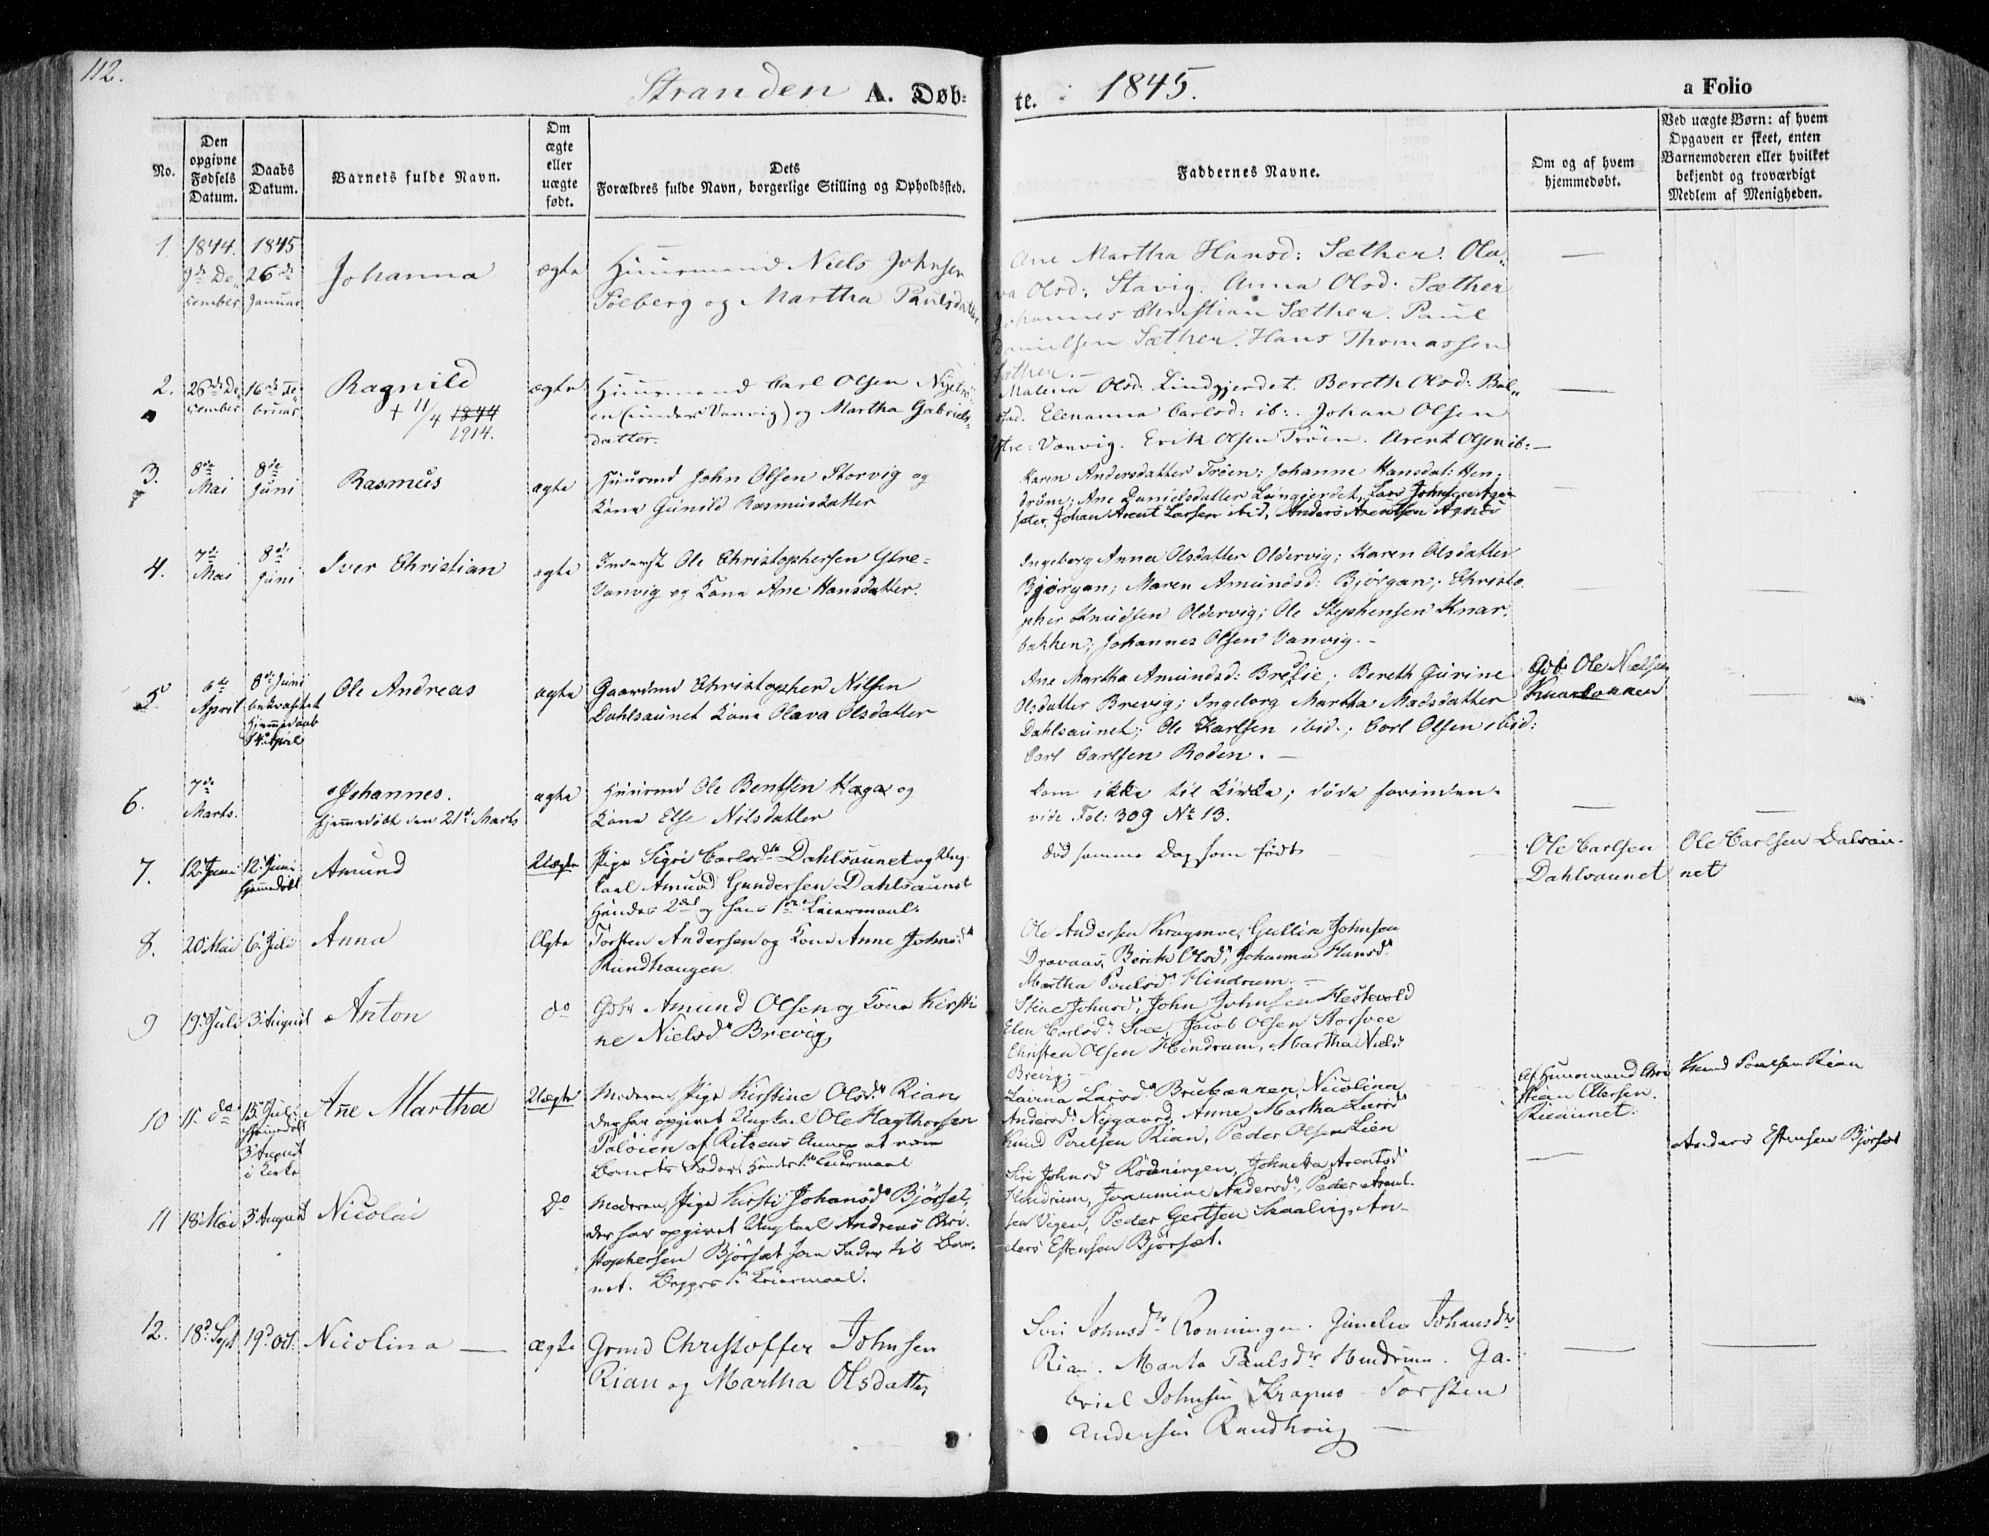 112.
Stranden A. Døb-
te. 1845.
a Folio
No.
Den opgivne Fødsels Datum.
Daabs Datum.
Barnets fulde Navn.
Om ægte eller uægte født.
Dets
Forældres fulde Navn, borgerlige Stilling og Opholdssted.
Faddernes Navne.
Om og af hvem hjemmedøbt.
Ved uægte Børn: af hvem Opgaven er skeet, enten Barnemoderen eller hvilket bekjendt og troværdigt Medlem af Menigheden.
1
1844. 9de December
1845 26de Januar
Johanna
ægte
Huusmand Niels Johnsen
Soeberg og Martha Paulsdatter
Ane Martha Hansd: Sæther. Ola-
va Olsd: Stavig. Anna Olsd: Sæther
Johannes Christian Sæther. Paul
Danielsen Sæther. Hans Thomassen
Sæther.
—
2.
26de December
16de Februar
Ragnild
+ 11/4 1844
1914.
ægte
Huusmand Carl Olsen
en (under Vanvig) og Martha Gabriels-
datter
Malena Olsd: Lindgjerdet. Bereth Olsd: Bol-
stad. Elenanna Carlsd: ib:. Johan Olsen
Ytre-Vanvig. Erik Olsen Trøen. Arent Olsen ib: —
—
3.
8de Mai
8de Juni
Rasmus
ægte
Huusmd John Olsen Storvig og
Kone Gunild Rasmusdatter
Karen Andersdatter Trøen; Johanne Hansdat: Hin-
drum; Ane Danielsdatter Langjerdet, Lars Johnsen
Johan Arent Larsen ibid, Anders Arentsen
4.
7de Mai
8de Juni
Iver Christian
ægte
Inderst Ole Christophersen Ytre-
Vanvig og Kone Ane Hansdatter.
Ingeborg Anna Olsdatter Oldervig; Karen Olsdatter
Bjørgan; Maren Amundsd: Bjørgan; Christo-
pher Knudsen Oldervig; Ole Stephensen Knar-
bakken; Johannes Olsen Vanvig. —
5.
6te April
8de Juni bekræftet Hjemmedaab 14 April
Ole Andreas
ægte
Gaardmd Christopher Nilsen
Dahlsaunet Kone Olava Olsdatter
Ane Martha Amundsd: Breslie; Bereth Gurine
Olsdatter Brevig; Ingeborg Martha Madsdatter
Dahlsaunet; Ole Karlsen ibid.; Carl Olsen ibid:
Carl Carlsen Roden. —
Gdb. Ole Nielsen
Knarbakken
6.
7de Marts.
Johannes.
Hjemmedøbt den 21de Marts
ægte
Huusmd Ole Bentsen Haga og
Kone Else Nilsdatter
Kom ikke til Kirke; døde forinden.
vide Fol: 309 No 13.
—
7.
12 Juni
12 Juni Hjemmedøbt
Amund
Uægte
Pige Sigri Carlsdtr Dahlsaunet og Ung-
karl Amund Gundersen Dahlsaunet
Hendes 2det og hans 1ste Leiermaal.
død samme Dag som født
Ole Carlsen
Dahlsaunet
Ole Carlsen Dalsau-
net
8.
20 Mai
6 Juli
Anna
Ægte
Torsten Andersen og Kone Anne Johnsdr
Rundhaugen
Ole Andersen Kragmoe, Gullik Johnsen
Dravaas, Berit Olsdr, Johanna Hansdr
Martha Poulsdr Hindrum. —
9
19 Juli
3 August
Anton
do
Gdbr Amund Olsen og Kone Kirsti-
ne Nielsdr Brevig
Stine Johnsdr, John Johnsen Hestevold
Elen Carlsdr Svee, Jacob Olsen Storsvee
Christen Olsen Hindrum, Martha Nielsdr
Brevig.
10
11. do
15 Juli Hjemmedøbt 3 August i Kirke
Ane Martha
Uægte
Moderen, Pige Kirstine Olsdr Rian
der har opgivet Ungkarl Ole Hagthorsen
af Ritsens Annex at være
Barnets Fader. Hendes 1ste Leiermaal
Lavina Larsdr Brubakken, Nicolina
Andersdr Nygaard, Anne Martha Larsdr
Knud Poulsen Rian, Peder Olsen Lien
Af Huusmand Chri-
stian Ellersen
Risaunet.
Knud Poulsen Rian
11
18 Mai
3 August
Nicolai
do
Moderen, Pige Kirsti Johansdr Bjørset,
der har opgivet Ungkarl Andreas Chri-
stophersen Bjørset som Fader til Bar-
net. Begges 1ste Leiermaal.
Siri Johnsdr Rønningen, Johneta Arentsdr
Hindrum, Jerumine Andersdr, Peder Arent-
sen Vigen, Peder Gertsen Skaalvig, An-
ders Estensen Bjørset.
—
Anders Estensen Bjørset
12.
18d Sept
19d Oct.
Nicolina —
ægte
Grmd Christoffer Johnsen
Rian og Martha Olsdatter
Siri Johnsdtr Rønningen. Gunelia Johansdtr
Rian. Marta Paulsdtr Hindrum. Ga-
briel Johnsen Kragmo - Torsten
Andersen Rundhoug —